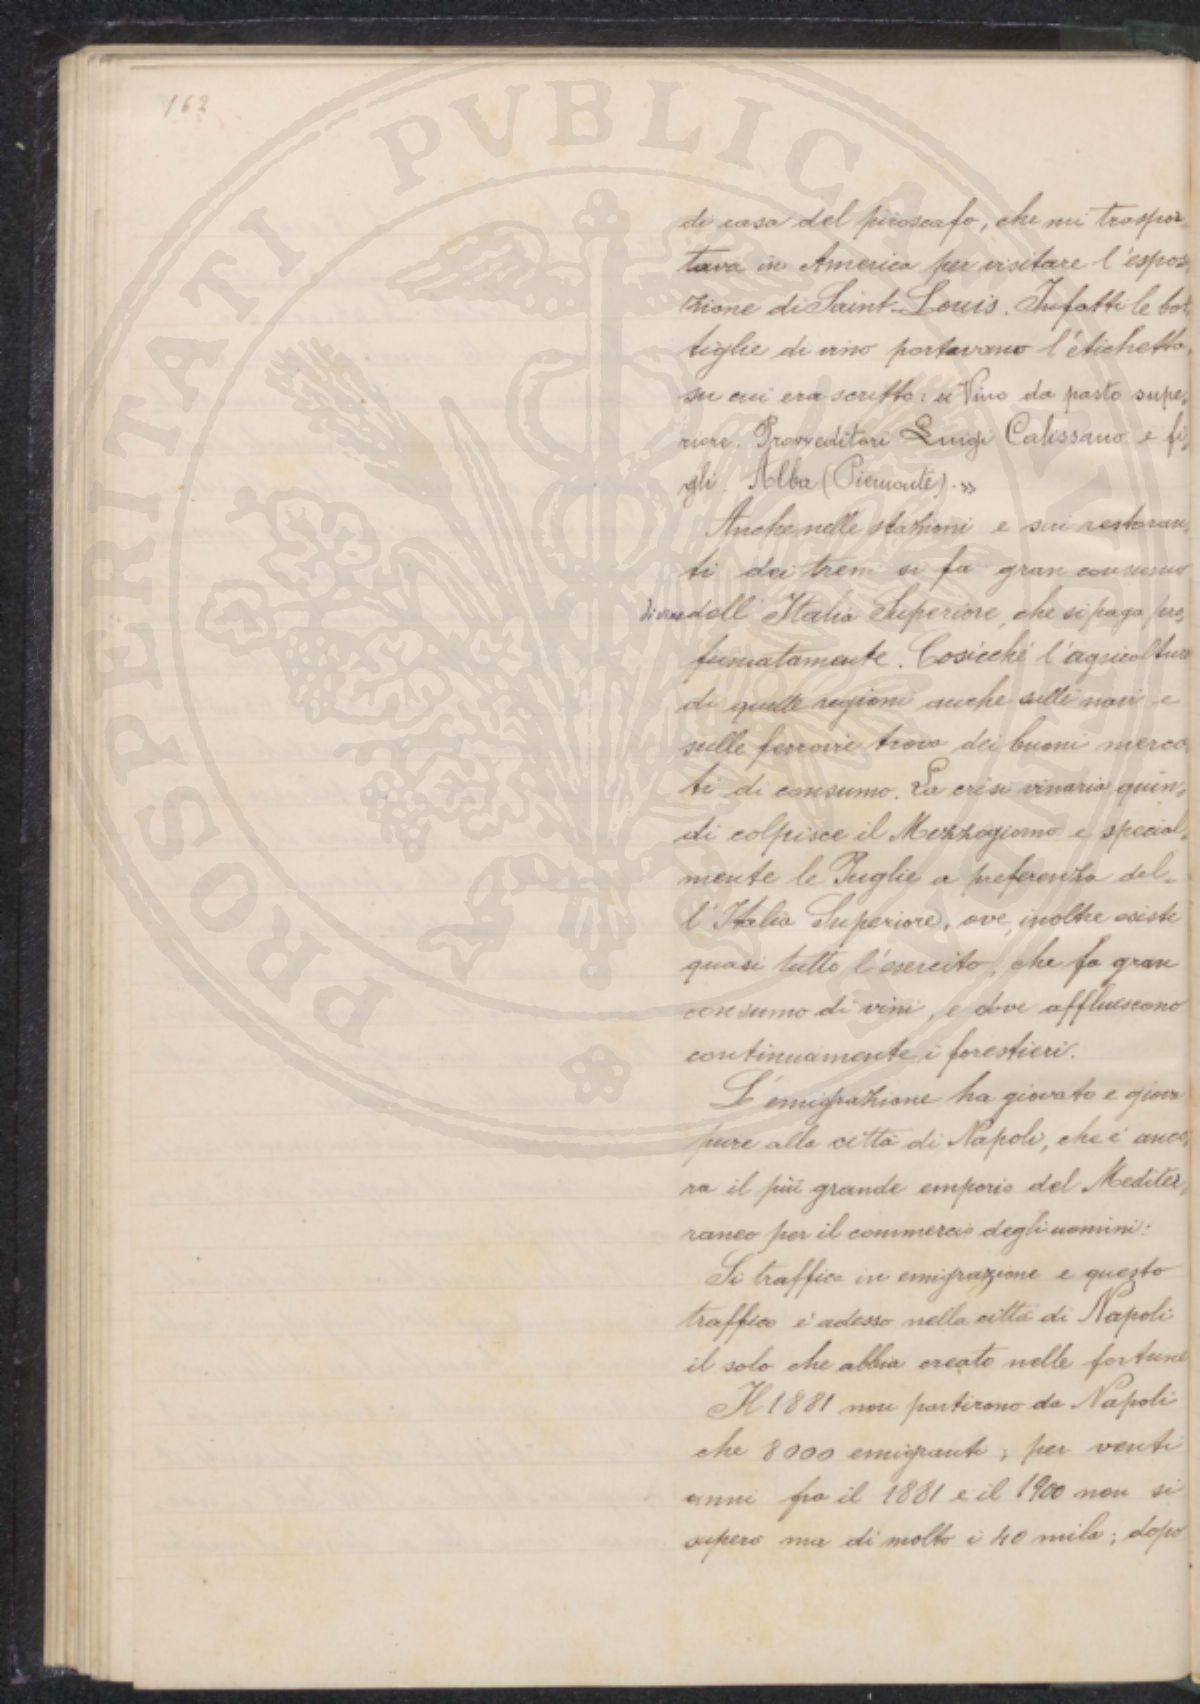 162
PROSPERITATI PVBLICAE AVGENDAE
di casa del piroscafo, che mi traspor-
tava in America per visitare l'esposi-
zione di Saint-Louis. Infatti le bot-
tiglie di vino portavano l'etichetta,
su cui era scritto: « Vino da pasto supe-
riore. Provveditori Luigi Calissano e fi-
gli. Alba (Piemonte). »
Anche nelle stazioni e sui restoran-
ti dei treni si fa gran consumo
di vino dell' Italia Superiore, che si paga pro-
fumatamente. Cosicché l'agricoltura
di quelle regioni anche sulle navi e
sulle ferrovie trova dei buoni merca-
ti di consumo. La crisi vinaria quin-
di colpisce il Mezzogiorno e special-
mente le Puglie a preferenza del-
l'Italia Superiore, ove inoltre esiste
quasi tutto l'esercito, che fa gran
consumo di vini, e dove affluiscono
continuamente i forestieri.
L'emigrazione ha giovato e giova
pure alla città di Napoli, che è anco-
ra il più grande emporio del Mediter-
raneo per il commercio degli uomini:
Si traffica in emigrazione e questo
traffico è adesso nella città di Napoli
il solo che abbia creato nelle fortune
Il 1881 non partirono da Napoli
che 8000 emigranti; per venti
anni fra il 1881 e il 1900 non si
superò mai di molto i 40 mila; dopo